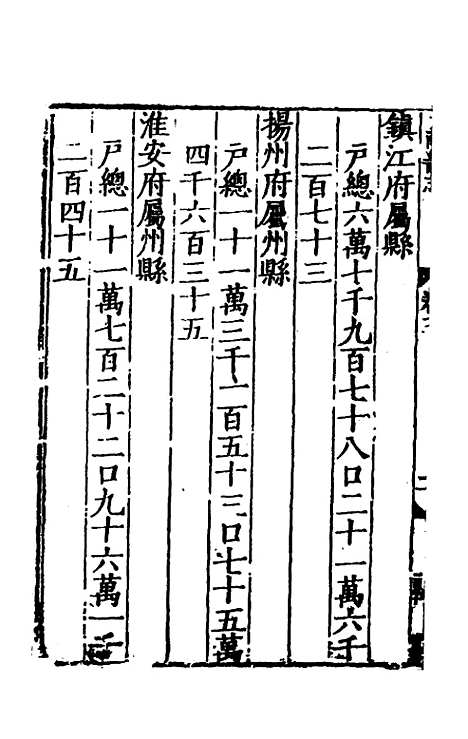 鎮江府屬縣
戶總六萬十千九百七十八口二十一萬六千
二百七十三
揚州府屬州縣
戶總一十一萬三千一百五十三口七十五萬
四千六百三十五
淮安府屬州縣
戶總一十一萬七百二十二口九十六萬一千
二百四十五